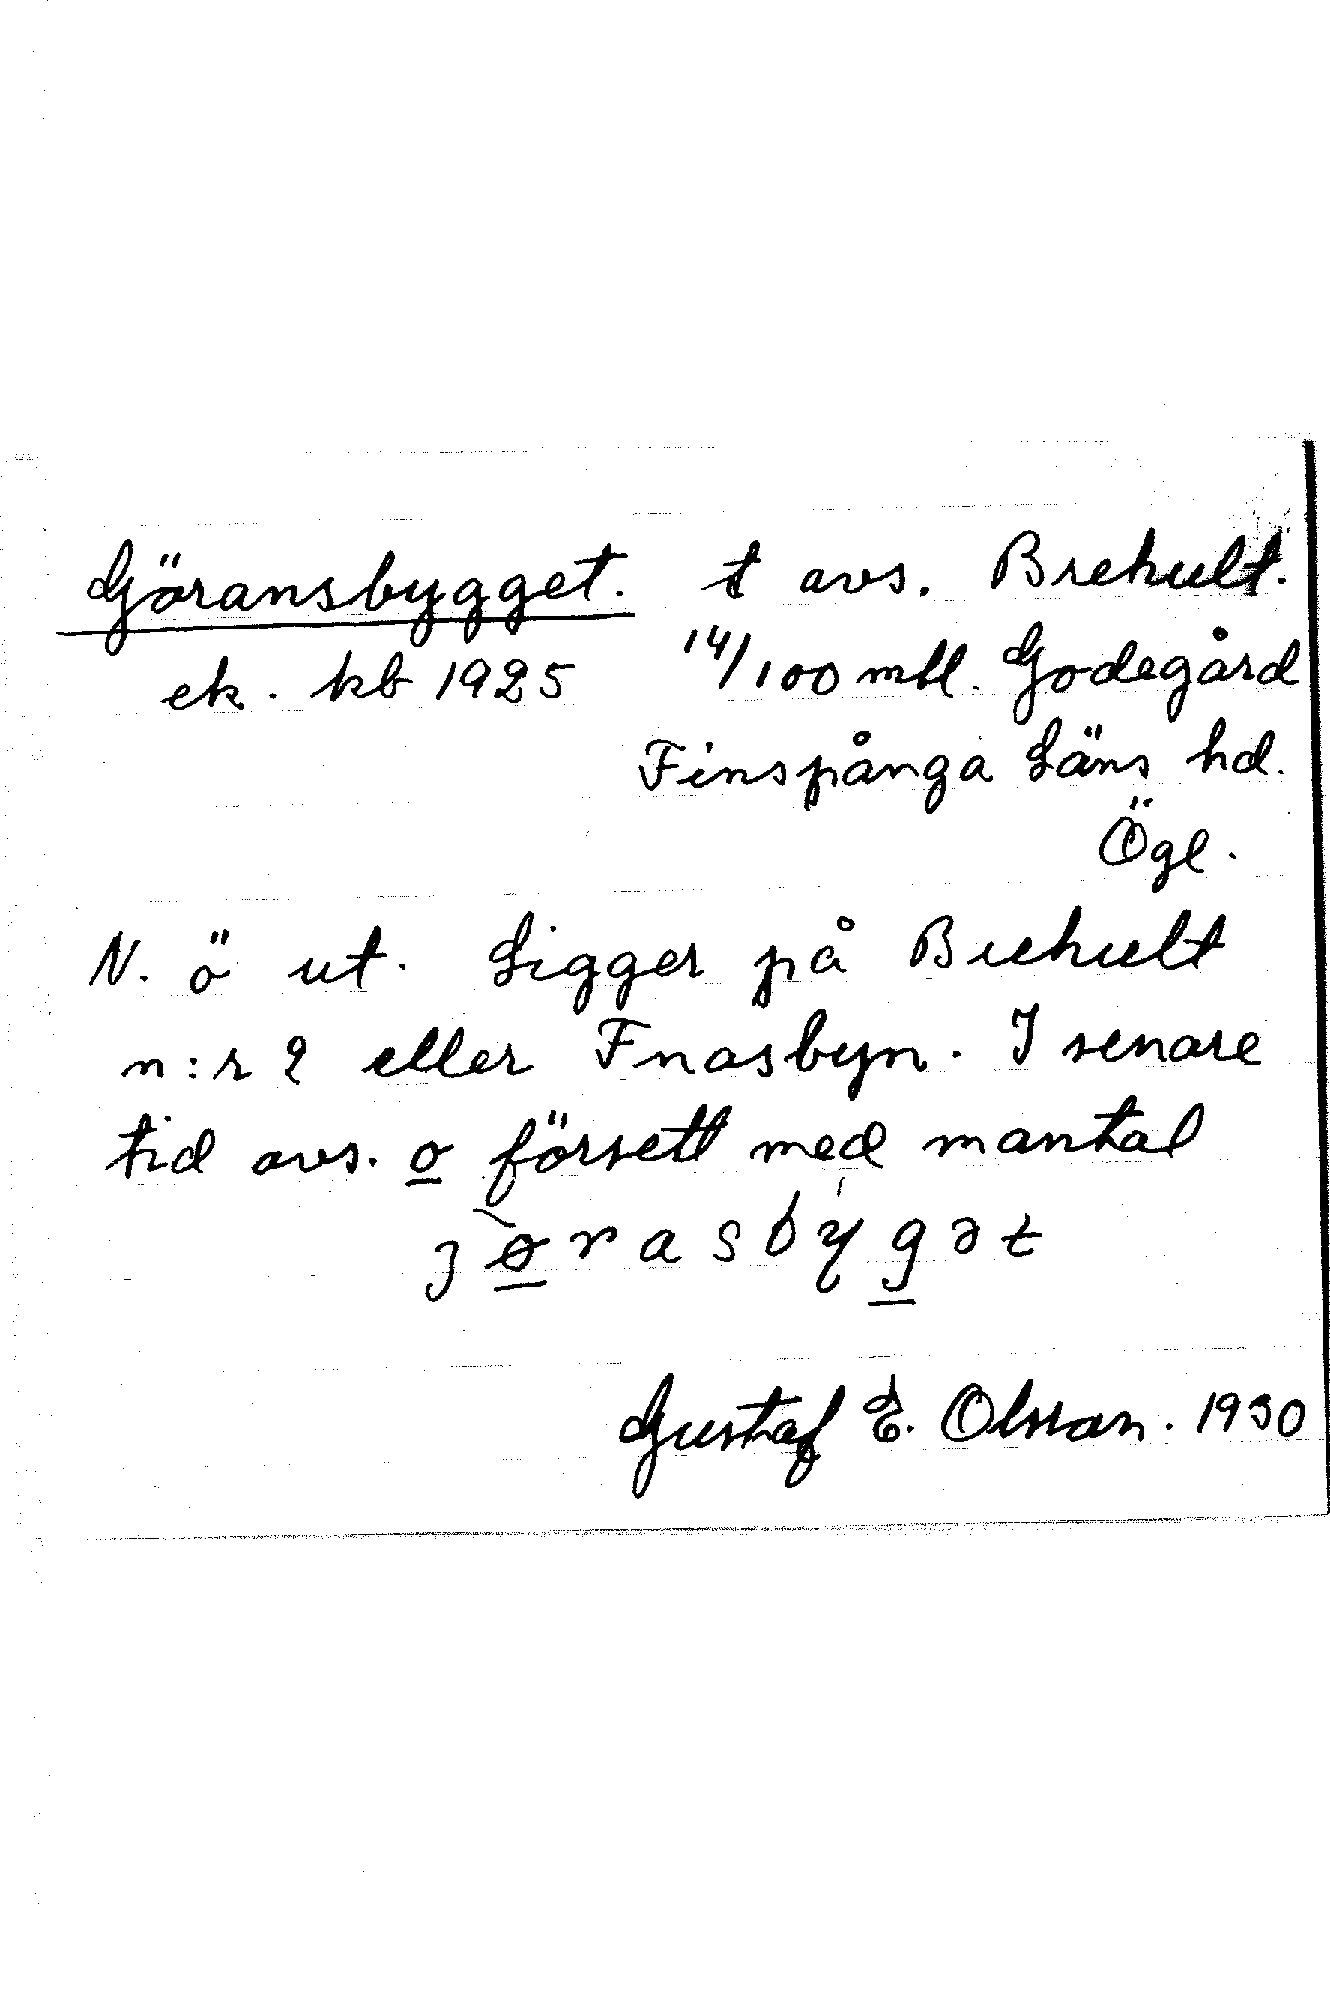 Göransbygget. t avs. Brehult.
ek. kb 1925 14/100 mtl. Godegård
Finspånga Läns hd.
Ögl.
N. ö ut. Ligger på Brehult
n:r 2 eller Fnasbyn. I senare
tid avs. o försett med mantal
jørasbygət
Gustaf E. Olsson. 1930